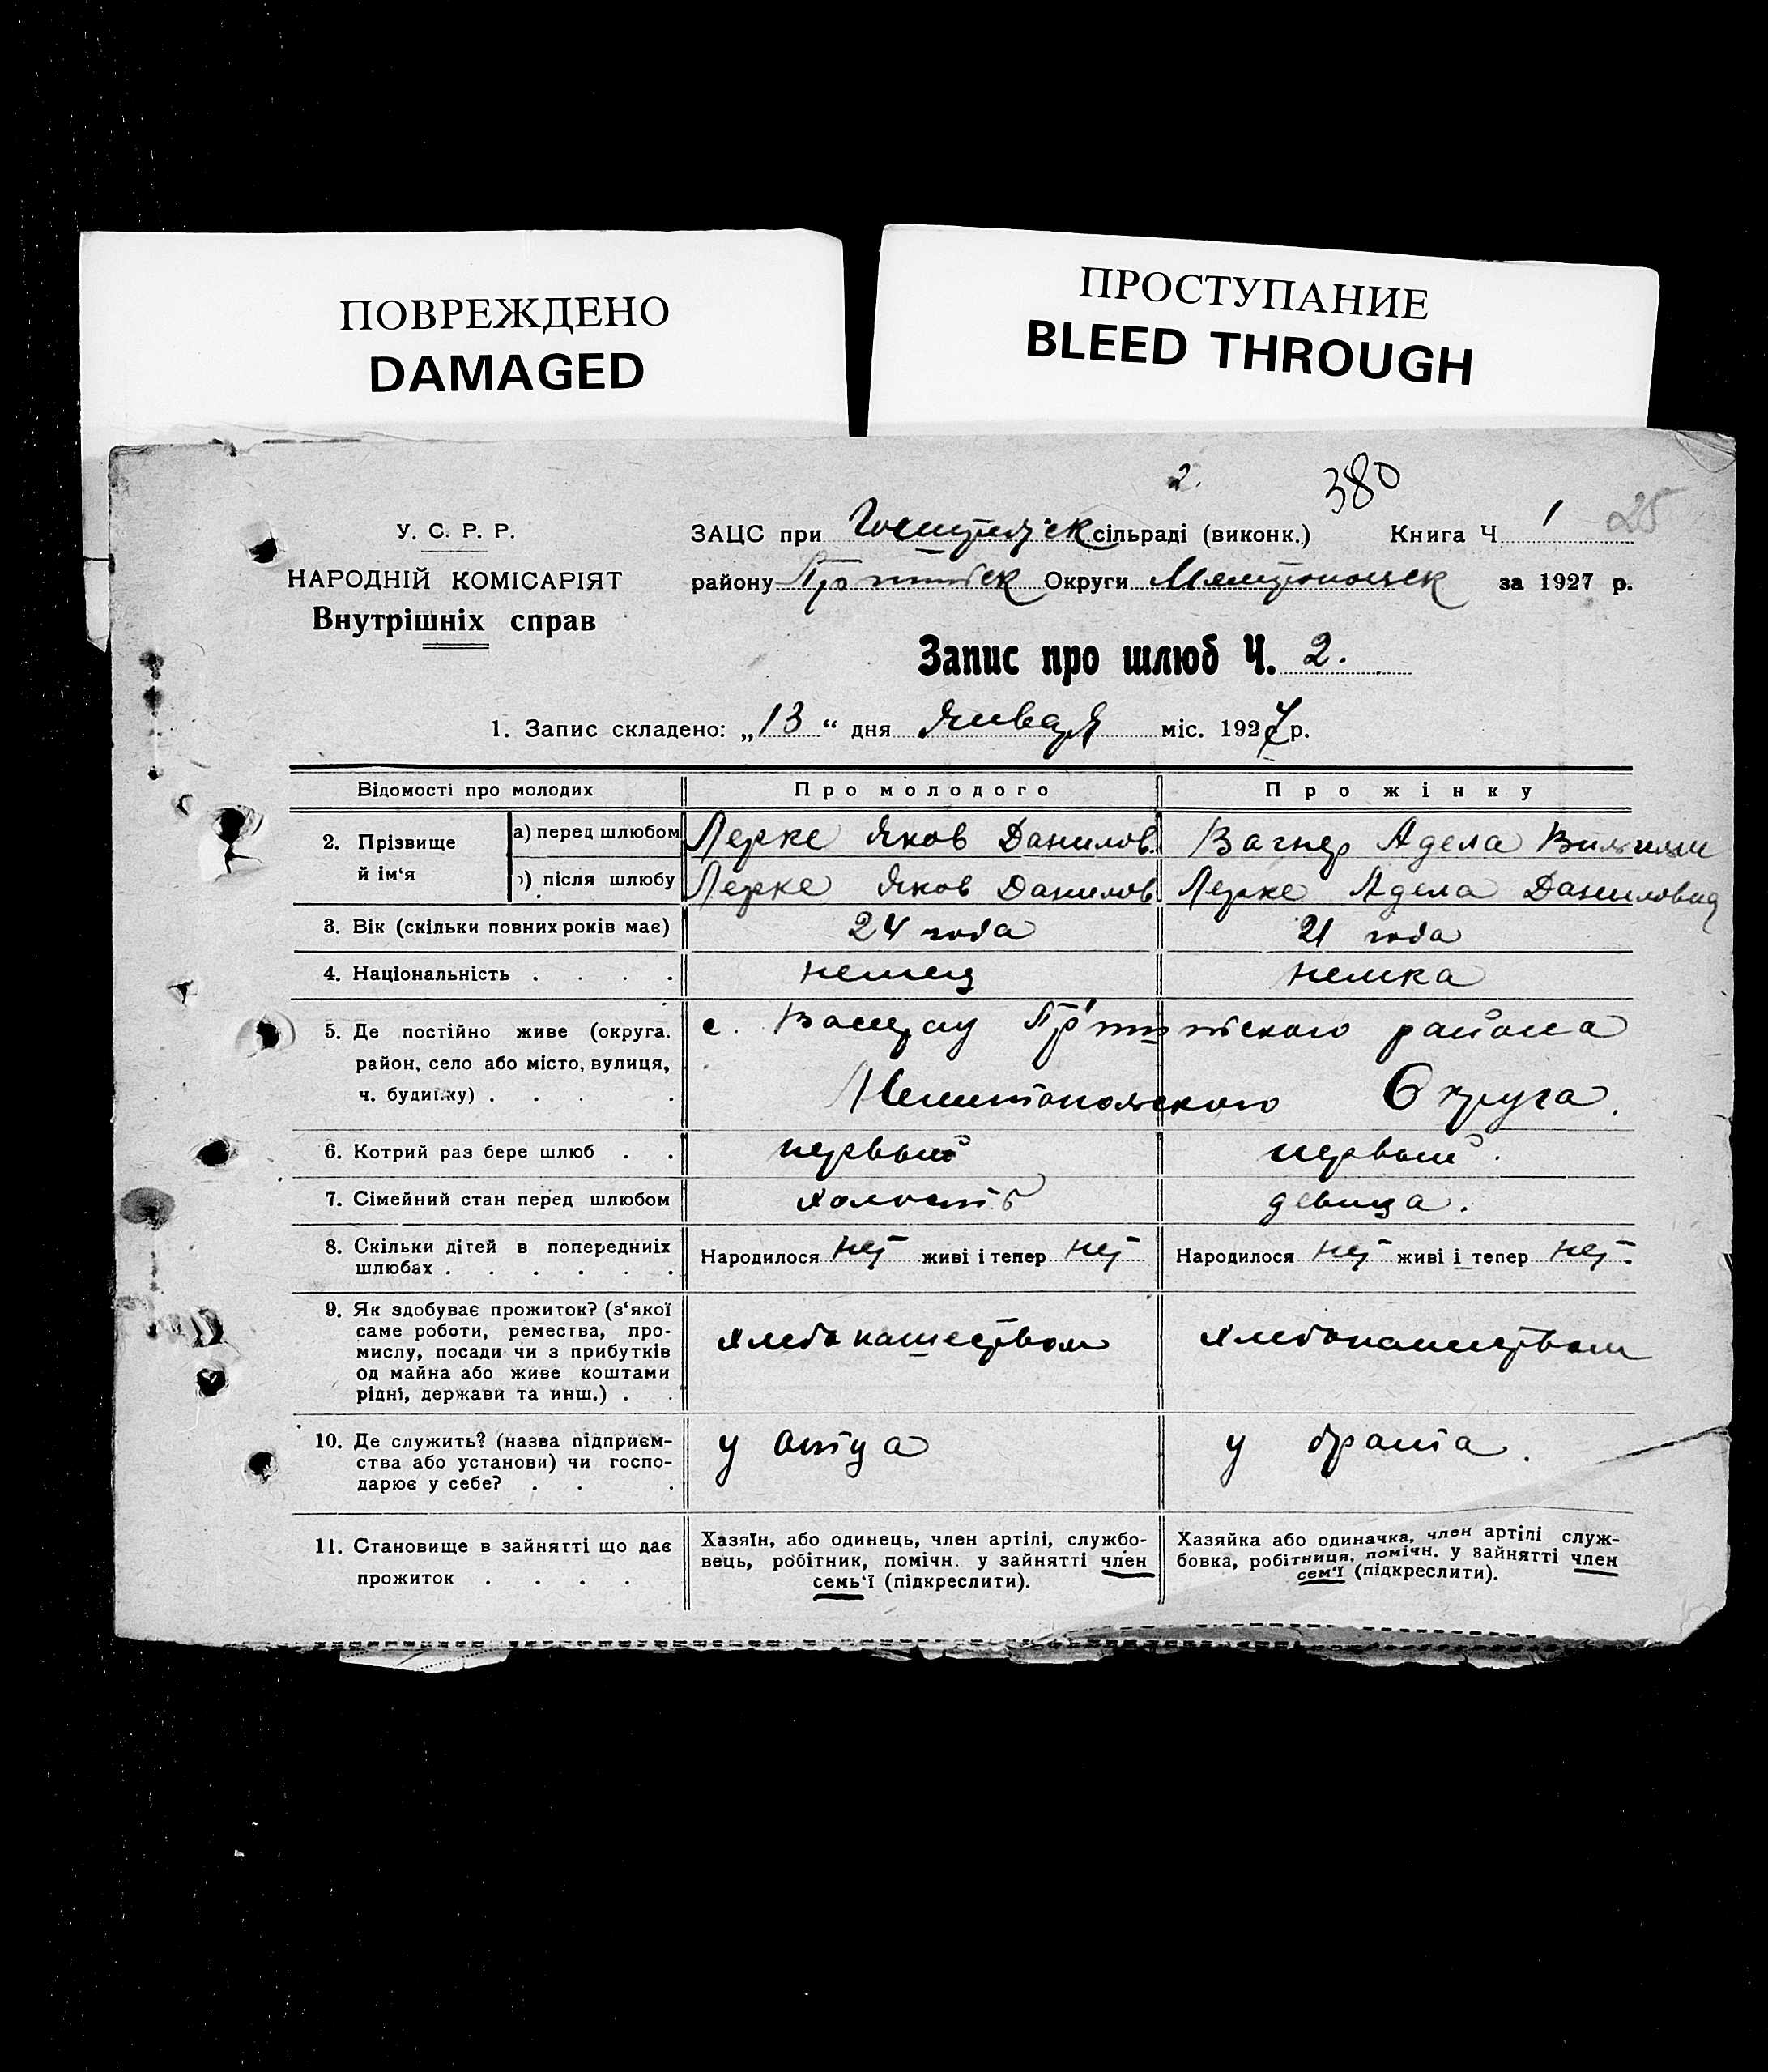 ПОВРЕЖДЕНО
DAMAGED
ПРОСТУПАНИЕ
BLEED THROUGH
2.
380
25
У. С. Р. Р.
НАРОДНІЙ КОМІСАРІЯТ
Внутрішніх справ
ЗАЦС при сільраді (виконк.) Книга Ч 1
району Округи за 1927 р.
Запис про шлюб Ч. 2.
1. Запис складено: „13“ дня Января міс. 1927 р.
Відомості про молодих
Про молодого
Про жінку
2. Прізвище й ім‘я
а) перед шлюбом
Лерке Яков Данилов.
Вагнер Адела
) після шлюбу
Лерке Яков Данилов
Лерке Адела Даниловна
3. Вік (скільки повних років має)
24 года
21 года
4. Національність . . . .
немец
немка
5. Де постійно живе (округа.
район, село або місто, вулиця,
ч. будинку) . . . .
с. района
Округа.
6. Котрий раз бере шлюб . .
первый
первый.
7. Сімейний стан перед шлюбом
холост
девица.
8. Скільки дітей в попередниіх
шлюбах . . . . . .
Народилося нет живі і тепер нет
Народилося нет живі і тепер нет.
9. Як здобуває прожиток? (з‘якої
саме роботи, ремества, про-
мислу, посади чи з прибутків
од майна або живе коштами
рідні, держави та инш.) . .
хлебопашеством
хлебопашеством
10. Де служить? (назва підприєм-
ства або установи) чи госпо-
дарює у себе? . . .
у отца
у брата.
11. Становище в зайнятті що дає
прожиток . . . .
Хазяїн, або одинець, член артілі, службо-
вець, робітник, помічн. у зайнятті член
семь‘ї (підкреслити).
Хазяйка або одиначка, член артілі служ-
бовка, робітниця, помічн. у зайнятті член
сем‘ї (підкреслити).